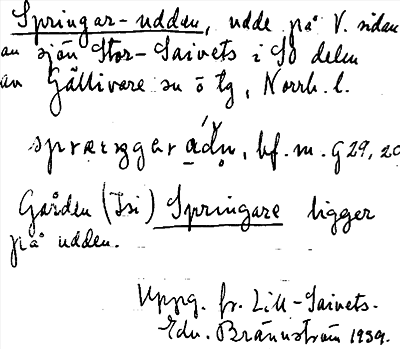 Springar-udden, udde på V. sidan
av sjön Stor-Saivets i SO delen
av Gällivare sn o tg, Norrb. l.
bf. m. G 29, 20
Gården (Isi) Springare ligger
på udden.
Uppg. fr. Lill-Saivets.
Edv. Brännström 1939.